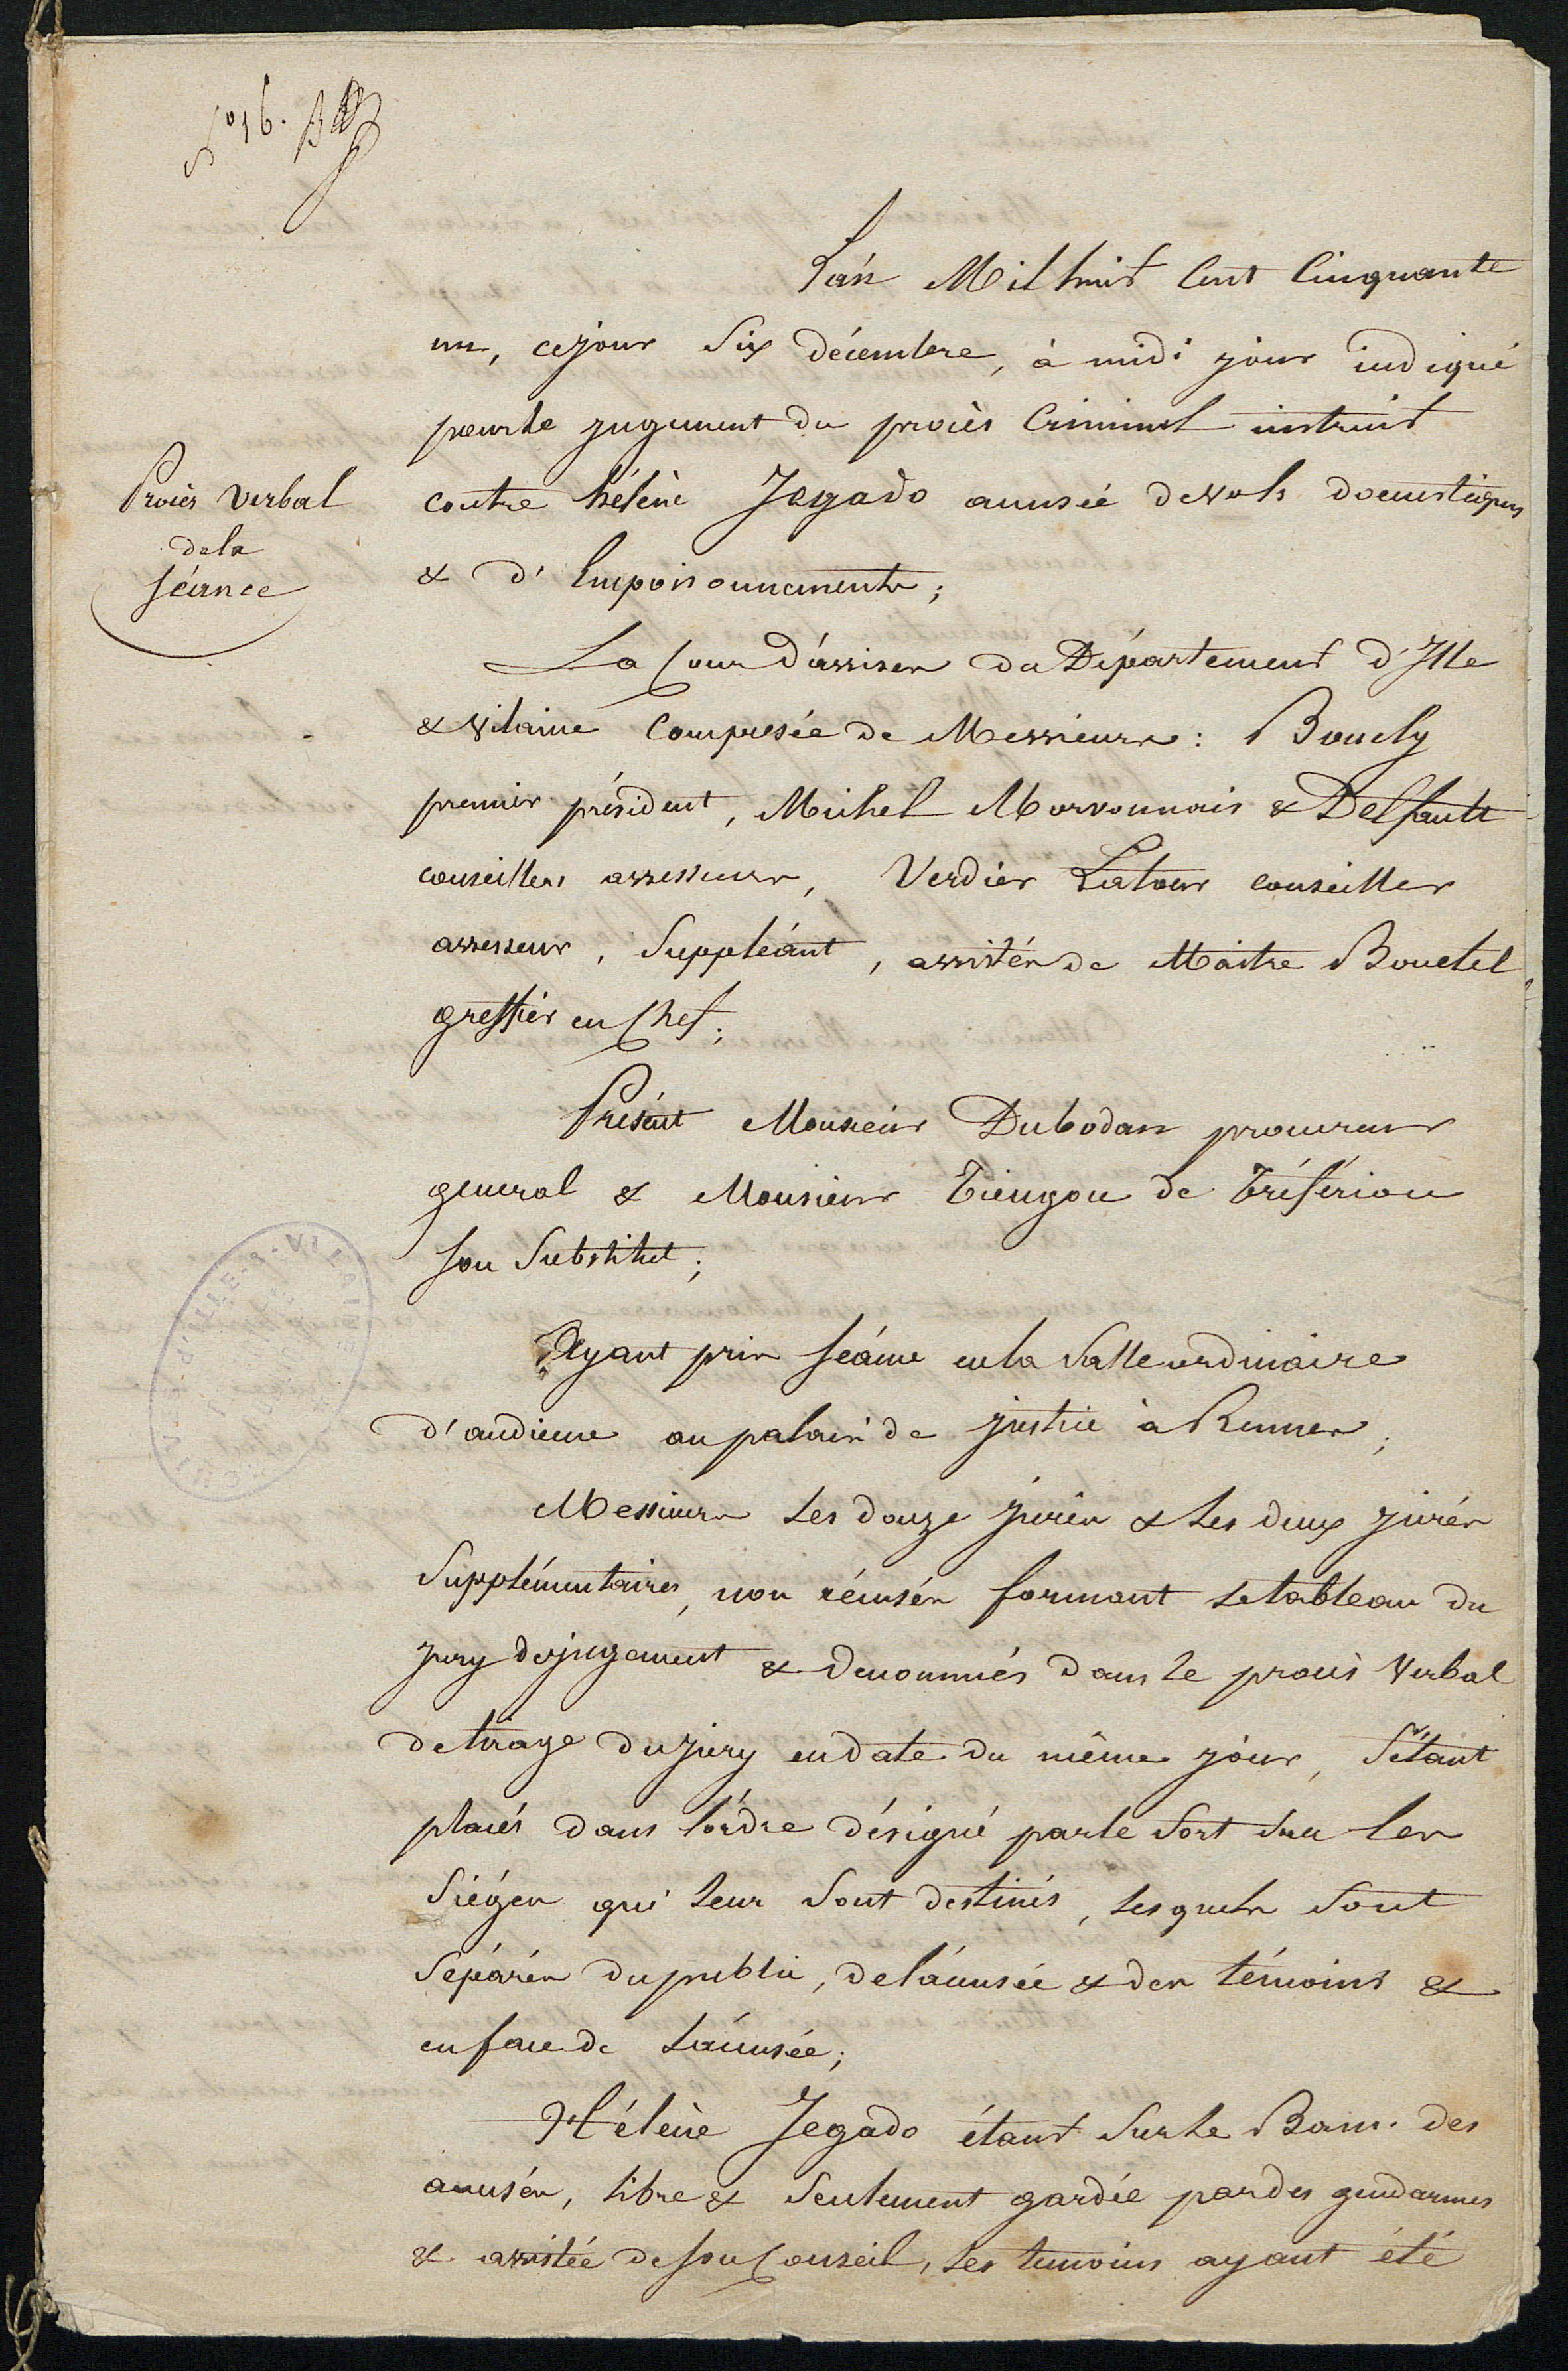 N° 16.
L'an Mil huit Cent Cinquante
un, ce jour Six décembre, à midi jour indiqué
pour le jugement du procès Criminel instruit
Procès Verbal
de la
Séance
contre hélène Jegado accusée de vols domestiques
& d'Empoisonnements;
La Cour d'assises du Département d'Ille
& Vilaine Composée de Messieurs: Boucly
premier président, Michel Morvonnais & Delfault
conseillers assesseurs, Verdier Latour conseiller
assesseur, Suppléant, assistés de Maitre Bouetel
greffier en Chef;
Présent Monsieur Dubodan procureur
general & Monsieur Tiengou de Tréfériou
son Substitut;
Ayant pris séance en la Salle ordinaire
d'audience au palais de justice à Rennes;
Messieurs Les douze jurés & les deux jurés
Supplémentaires, non récusés formant le tableau du
jury de jugement & denommés dans le procès Verbal
de tirage du jury en date du même jour, S'étant
placés dans l'ordre désigné par le Sort Sur les
Siéges qui leur Sont destinés, lesquels Sont
Séparés du public, de l'accusée & des témoins &
en face de l'accusée;
Hélène Jegado étant Sur le Banc des
accusés, libre & Seulement gardée par des gendarmes
& assistée de son Conseil, les temoins ayant été